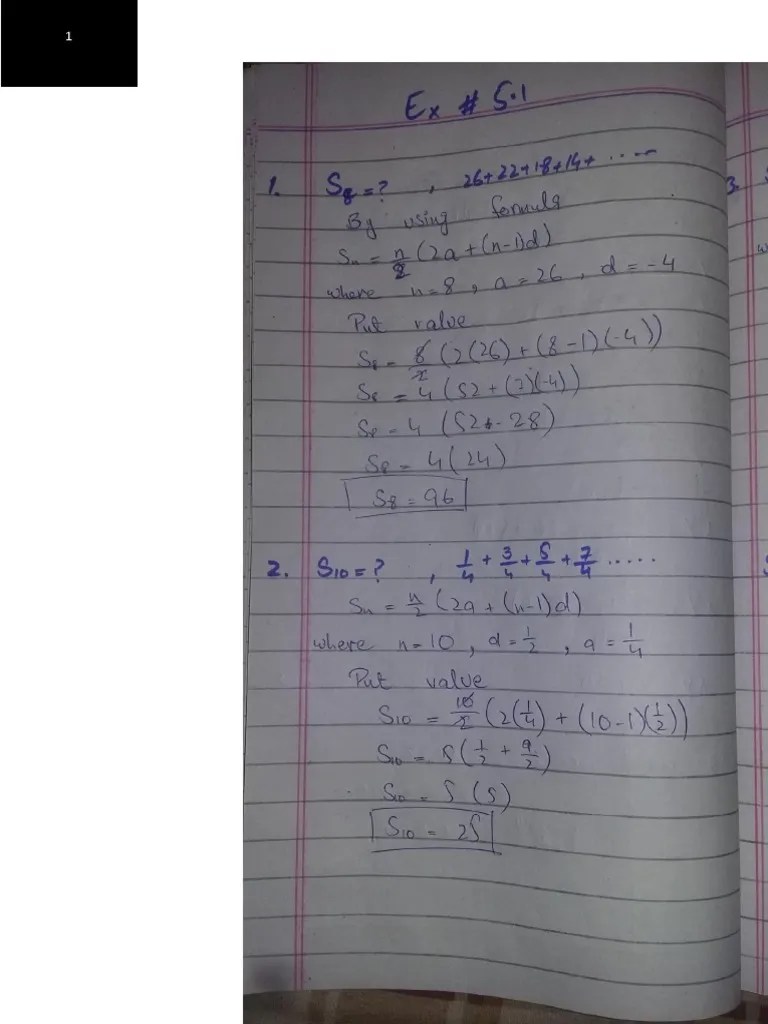 1
Ex # 5.1
1. S8 = ? , 26+22+18+14+ .....
By using formula
Sn = n/2 (2a + (n-1)d)
where n=8 , a = 26 , d = -4
Put value
S8 = 8/2 (2(26) + (8-1)(-4))
S8 = 4 (52 + (7)(-4))
S8 = 4 (52 - 28)
S8 = 4(24)
S8 = 96
2. S10 = ? , 1/4 + 3/4 + 5/4 + 7/4 .....
Sn = n/2 (2a + (n-1)d)
where n=10 , d = 1/2 , a = 1/4
Put value
S10 = 10/2 (2(1/4) + (10-1)(1/2))
S10 = 5(1/2 + 9/2)
S10 = 5 (5)
S10 = 25
3.